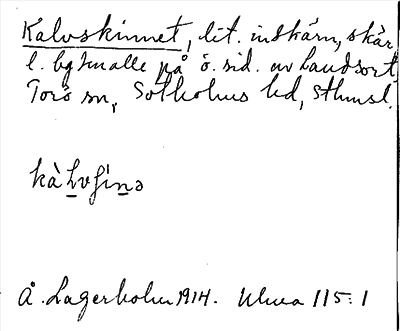 Kalvskinnet, lit. inskärn, skär
l. bg smalle på ö. sid. av Landsort,
Torö sn, Sotholms hd, Sthmsl.
Å. Lagerholm 1914. Ulma 115:1